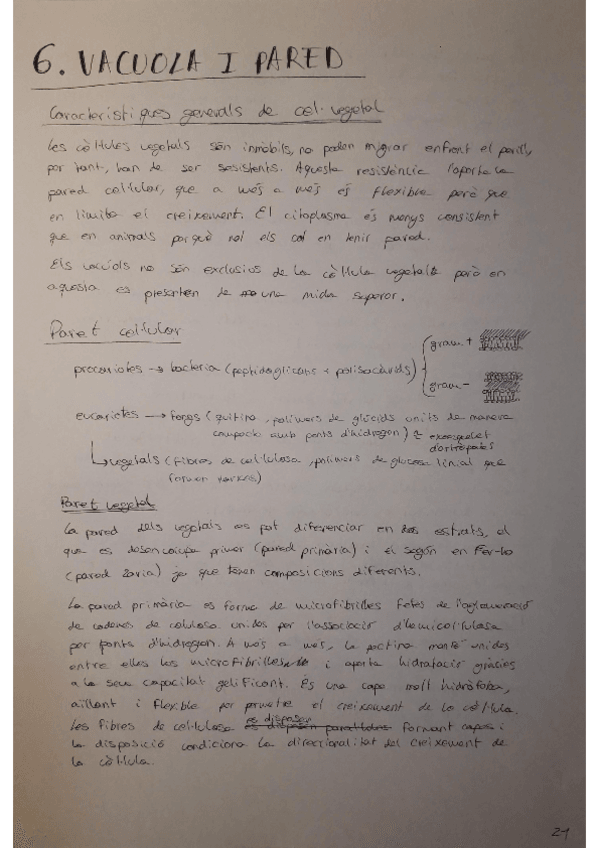 6. VACUOLA I PARED
Característiques generals de cel·vegetal
Les cèl·lules vegetals són immòbils, no poden migrar enfront el perill,
per tant, han de ser resistents. Aquesta resistència l'aporta la
pared cel·lular, que a més a més és flexible però que
en limita el creixement. El citoplasma és menys consistent
que en animals perquè no els cal en tenir pared.
Els vacúols no són exclusius de la cèl·lula vegetal però en
aquesta es presenten de una mida superor.
Paret cel·lular
procariotes → bacteria (peptidoglicans + polisacàrids)
gram +
gram -
eucariotes → fongs (quitina, polimers de glúcids units de manera
compacta amb ponts d'hidrogen) exoesquelet
d'artròpodes
vegetals (fibres de cel·lulosa, polimers de glucosa linial que
formen xarxes)
Paret vegetal
La pared dels vegetals es pot diferenciar en dos estrats, el
que es desenvolupa primer (pared primària) i el segón en fer-ho
(pared 2ària) ja que tenen composicions diferents.
La pared primària es forma de microfibrilles fetes de l'aglomeració
de cadenes de celulosa unides per l'associació d'hemicel·lulosa
per ponts d'hidrogen. A més a més, la pectina manté unides
entre elles les microfibrilles i aporta hidratació gràcies
a la seva capacitat gelificant. És una capa molt hidròfoba,
aïllant i flexible per permetre el creixement de la cèl·lula.
Les fibres de cel·lulosa es disposen formant capes i
la disposició condiciona la direccionalitat del creixement de
la cèl·lula.
21